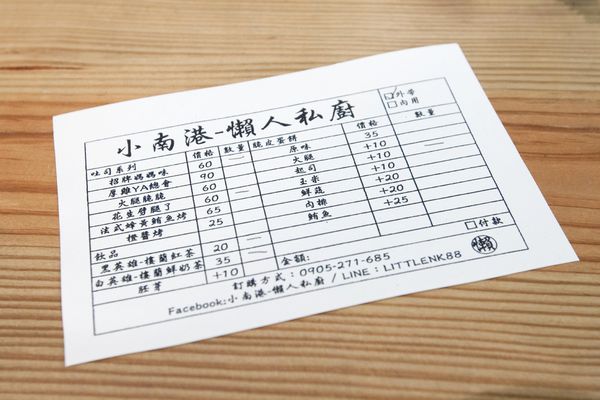 小南港-懶人私廚
外帶
內用
吐司系列 價格 數量 脆皮蛋餅 價格 數量
招牌媽媽味 60 原味 35
厚雞YA總會 90 火腿 +10
火腿脆脆 60 起司 +10
花生醬腿了 60 玉米 +10
法式蜂蜜鮪魚烤 65 鮮蔬 +20
橙醬烤 25 肉排 +20
鮪魚 +25
飲品
黑英雄-樓蘭紅茶 20
白英雄-樓蘭鮮奶茶 35 金額: 付款
胚芽 +10 懶
訂購方式:0905-271-685
Facebook:小南港-懶人私廚 / LINE:LITTLENK88